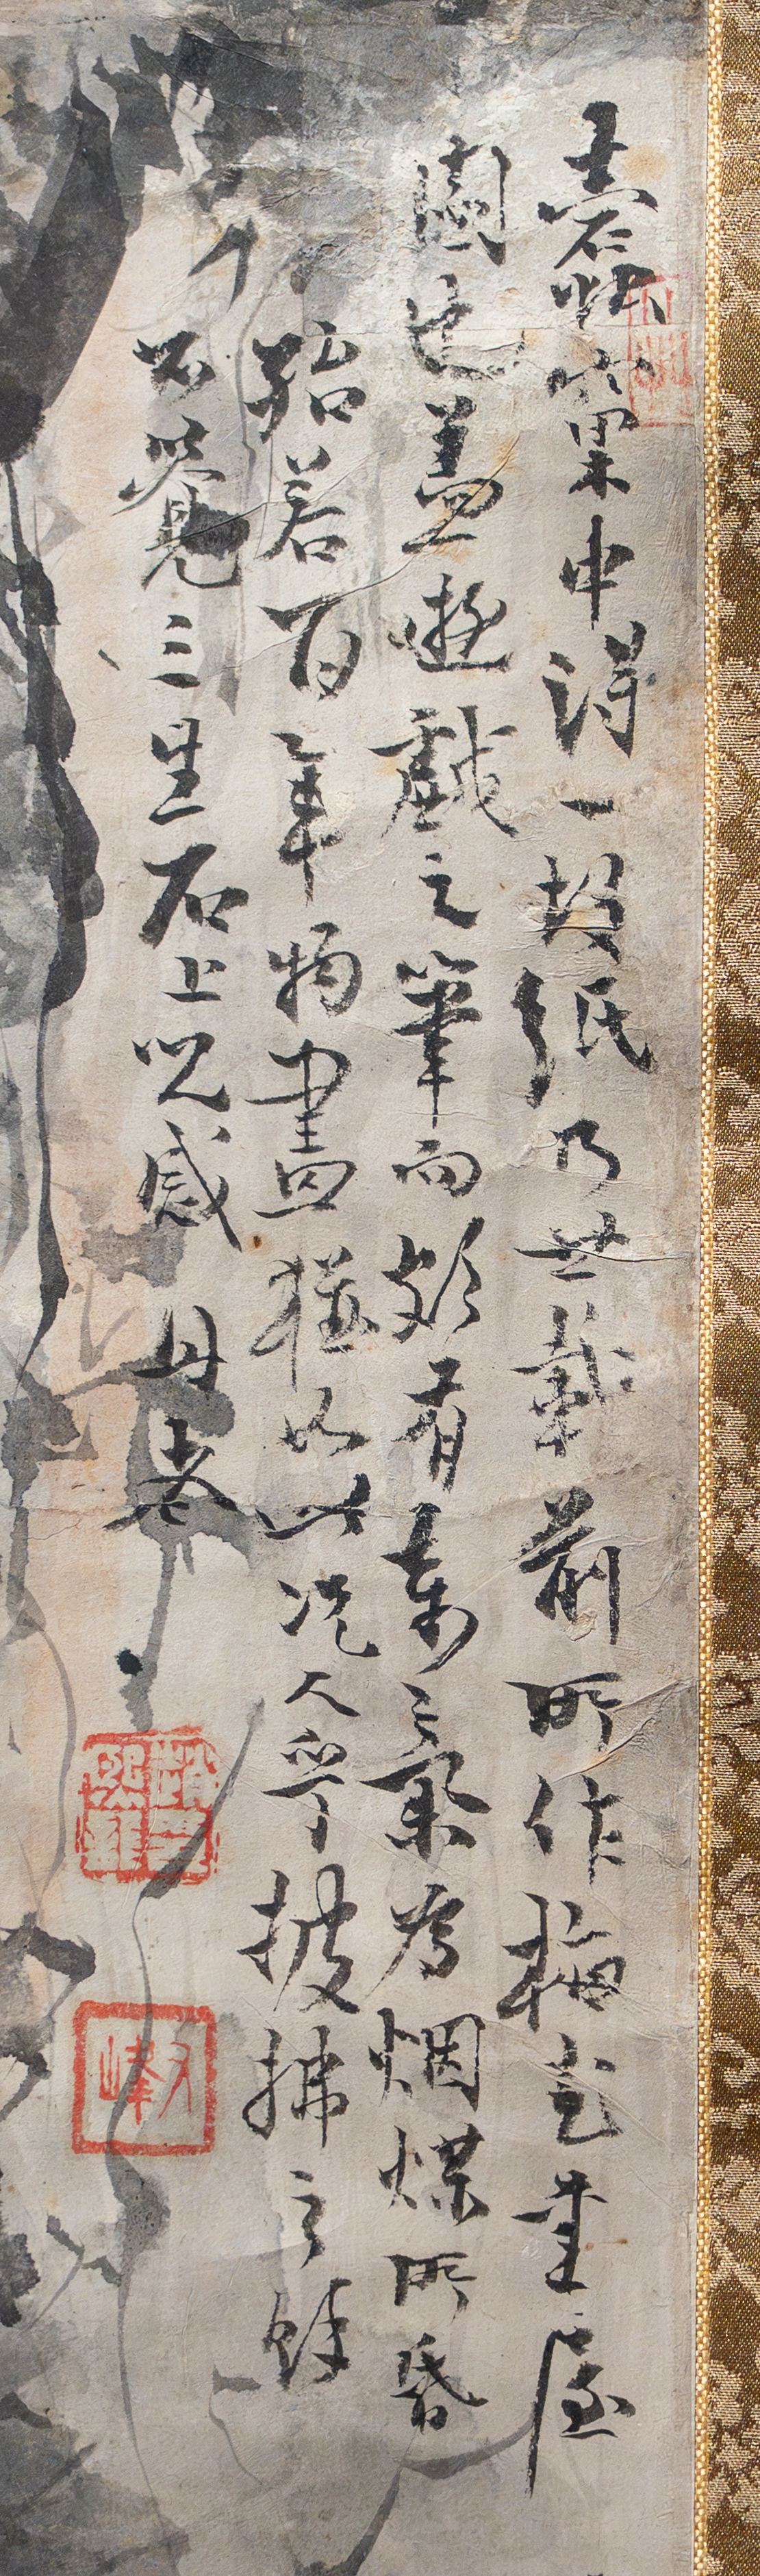 蠹窠中得一故紙乃廿載前所作梅花書屋
圖也蓋遊戲之筆而頗有奇氣爲烟煤所昏
殆若百年物畫猶如此况人乎披拂之餘
不覺三生石上感 丹老
趙熙龍印
又峰